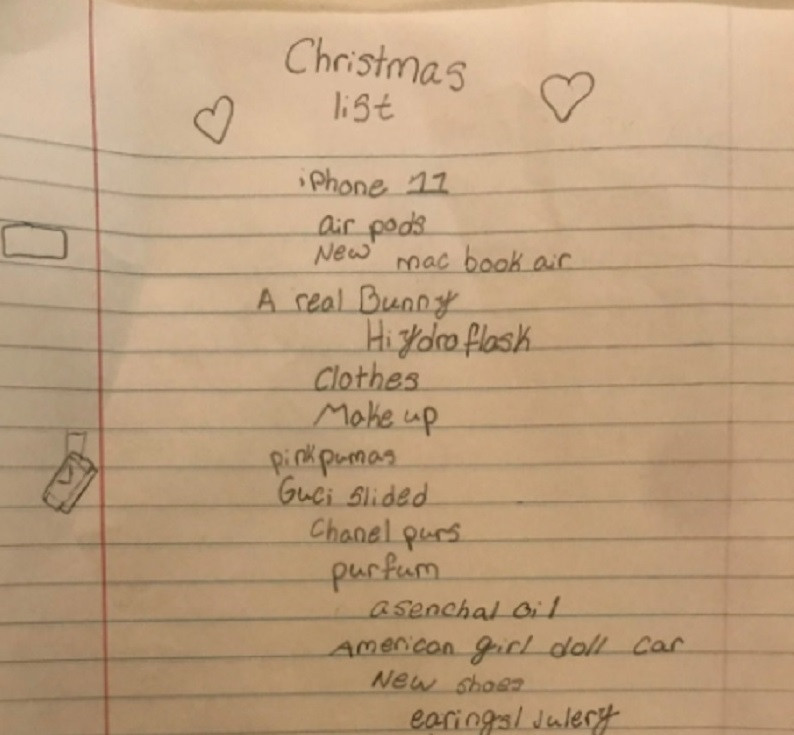 Christmas
list
iPhone 11
air pods
New mac book air
A real Bunny
Hiydroflask
Clothes
Make up
pink pumas
Guci slided
Chanel purs
purfum
asenchal oil
American girl doll car
New shoes
earings/ julery